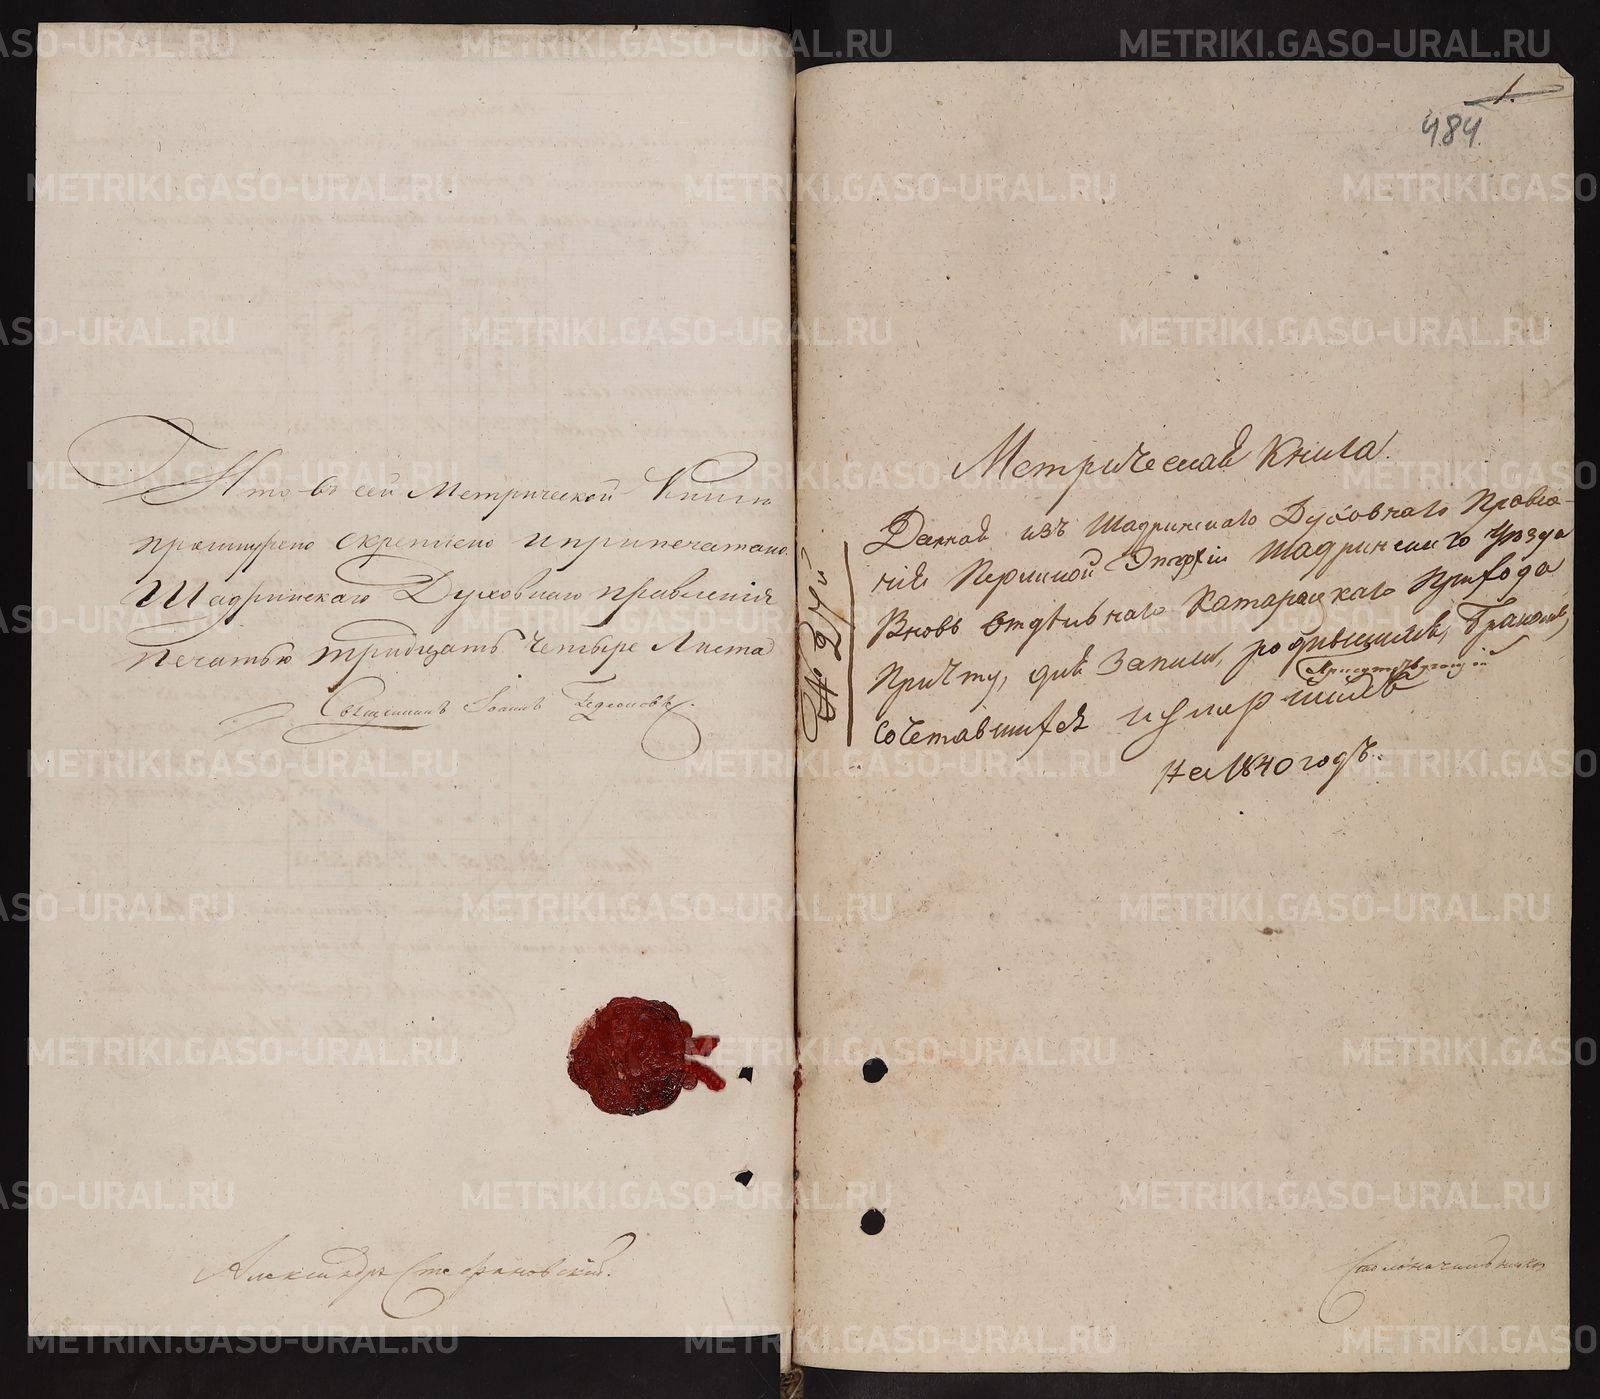 Что въ сей Метрической Книгѣ
прошнурено скреплено и припечатано
Шадринскаго Духовнаго правленія
печатью тридцать четыре листа
Священникъ Іоаннъ
Александръ Стефановскій.
1.
484.
Метрическая Книга.
Данная изъ Шадринскаго Духовнаго Правле-
нія Пермской Эпархіи Шадринскаго Уѣзда
Вновь отдѣльнаго Катарацкаго Прихода
Причту, для записи, родившихся, Бракомъ,
сочетавшихся и умершихъ
на 1840 годъ.
Столоначальникъ
METRIKI.GASO-URAL.RU